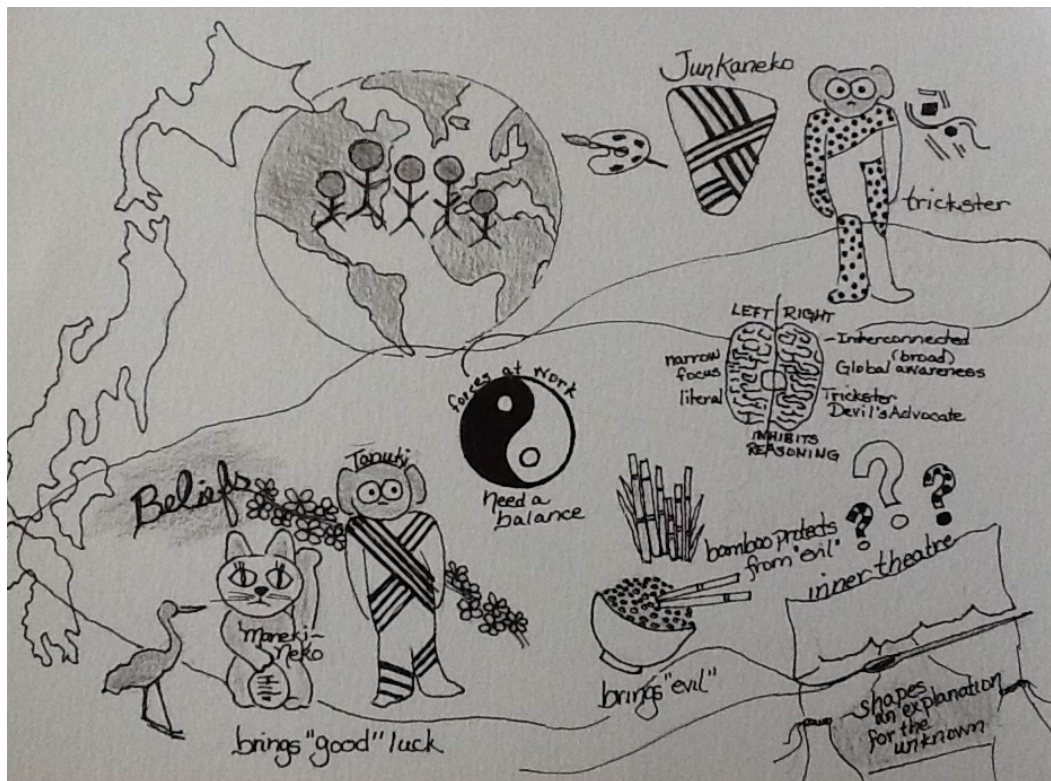 Junkaneko
trickster
LEFT RIGHT
narrow
focus
literal
-Interconnected
(broad)
Global awareness
Trickster
Devil's Advocate
INHIBITS
REASONING
forses at work
need a
balance
Beliefs
Tanuki
Maneki-
Neko
brings "good" luck
bamboo protects
from "evil"
brings "evil"
? ? ?
inner theatre
-shapes
an explanation
for the
unknown